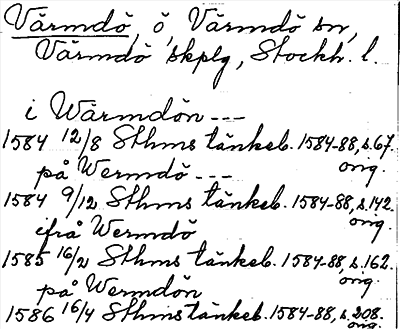 Värmdö, ö, Värmdö sn,
Värmdö skplg, Stockh. l.
i Wärmdön ---
1584 12/8 Sthms tänkeb. 1584-88, s.67.
orig.
på Wermdö ---
1584 9/12 Sthms tänkeb. 1584-88, s.142.
orig.
ifrå Wermdö
1585 16/2 Sthms tänkeb. 1584-88, s.162.
orig.
på Wermdön
1586 16/4 Sthms tänkeb. 1584-88, s.208.
orig.